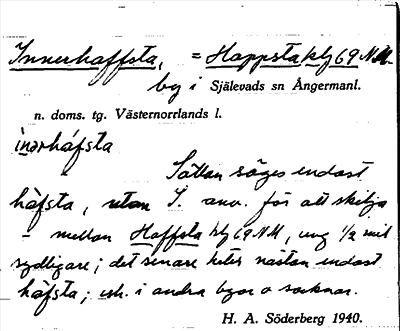 Innerhaffsta, = Happsta klg 69 NM
by i Själevads sn Ångermanl.
n. doms. tg. Västernorrlands l.
ìnərháfsta
Sällan säges endast
hàfsta, utan I. anv. för att skilja
– mellan Haffsta klg 69 NM, ung ½ mil
sydligare; det senare heter nästan endast
háfsta; i andra byar o socknar.
H. A. Söderberg 1940.